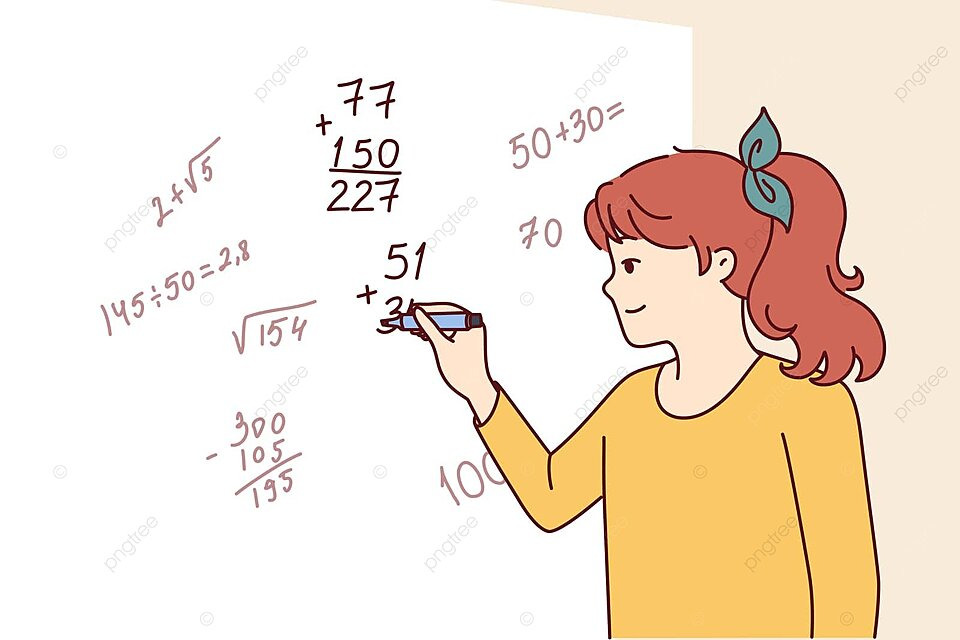 77
+
150
227
50+30=
2+√5
70
51
+
3
145÷50=2,8
√154
300
- 105
195
100
pngtree